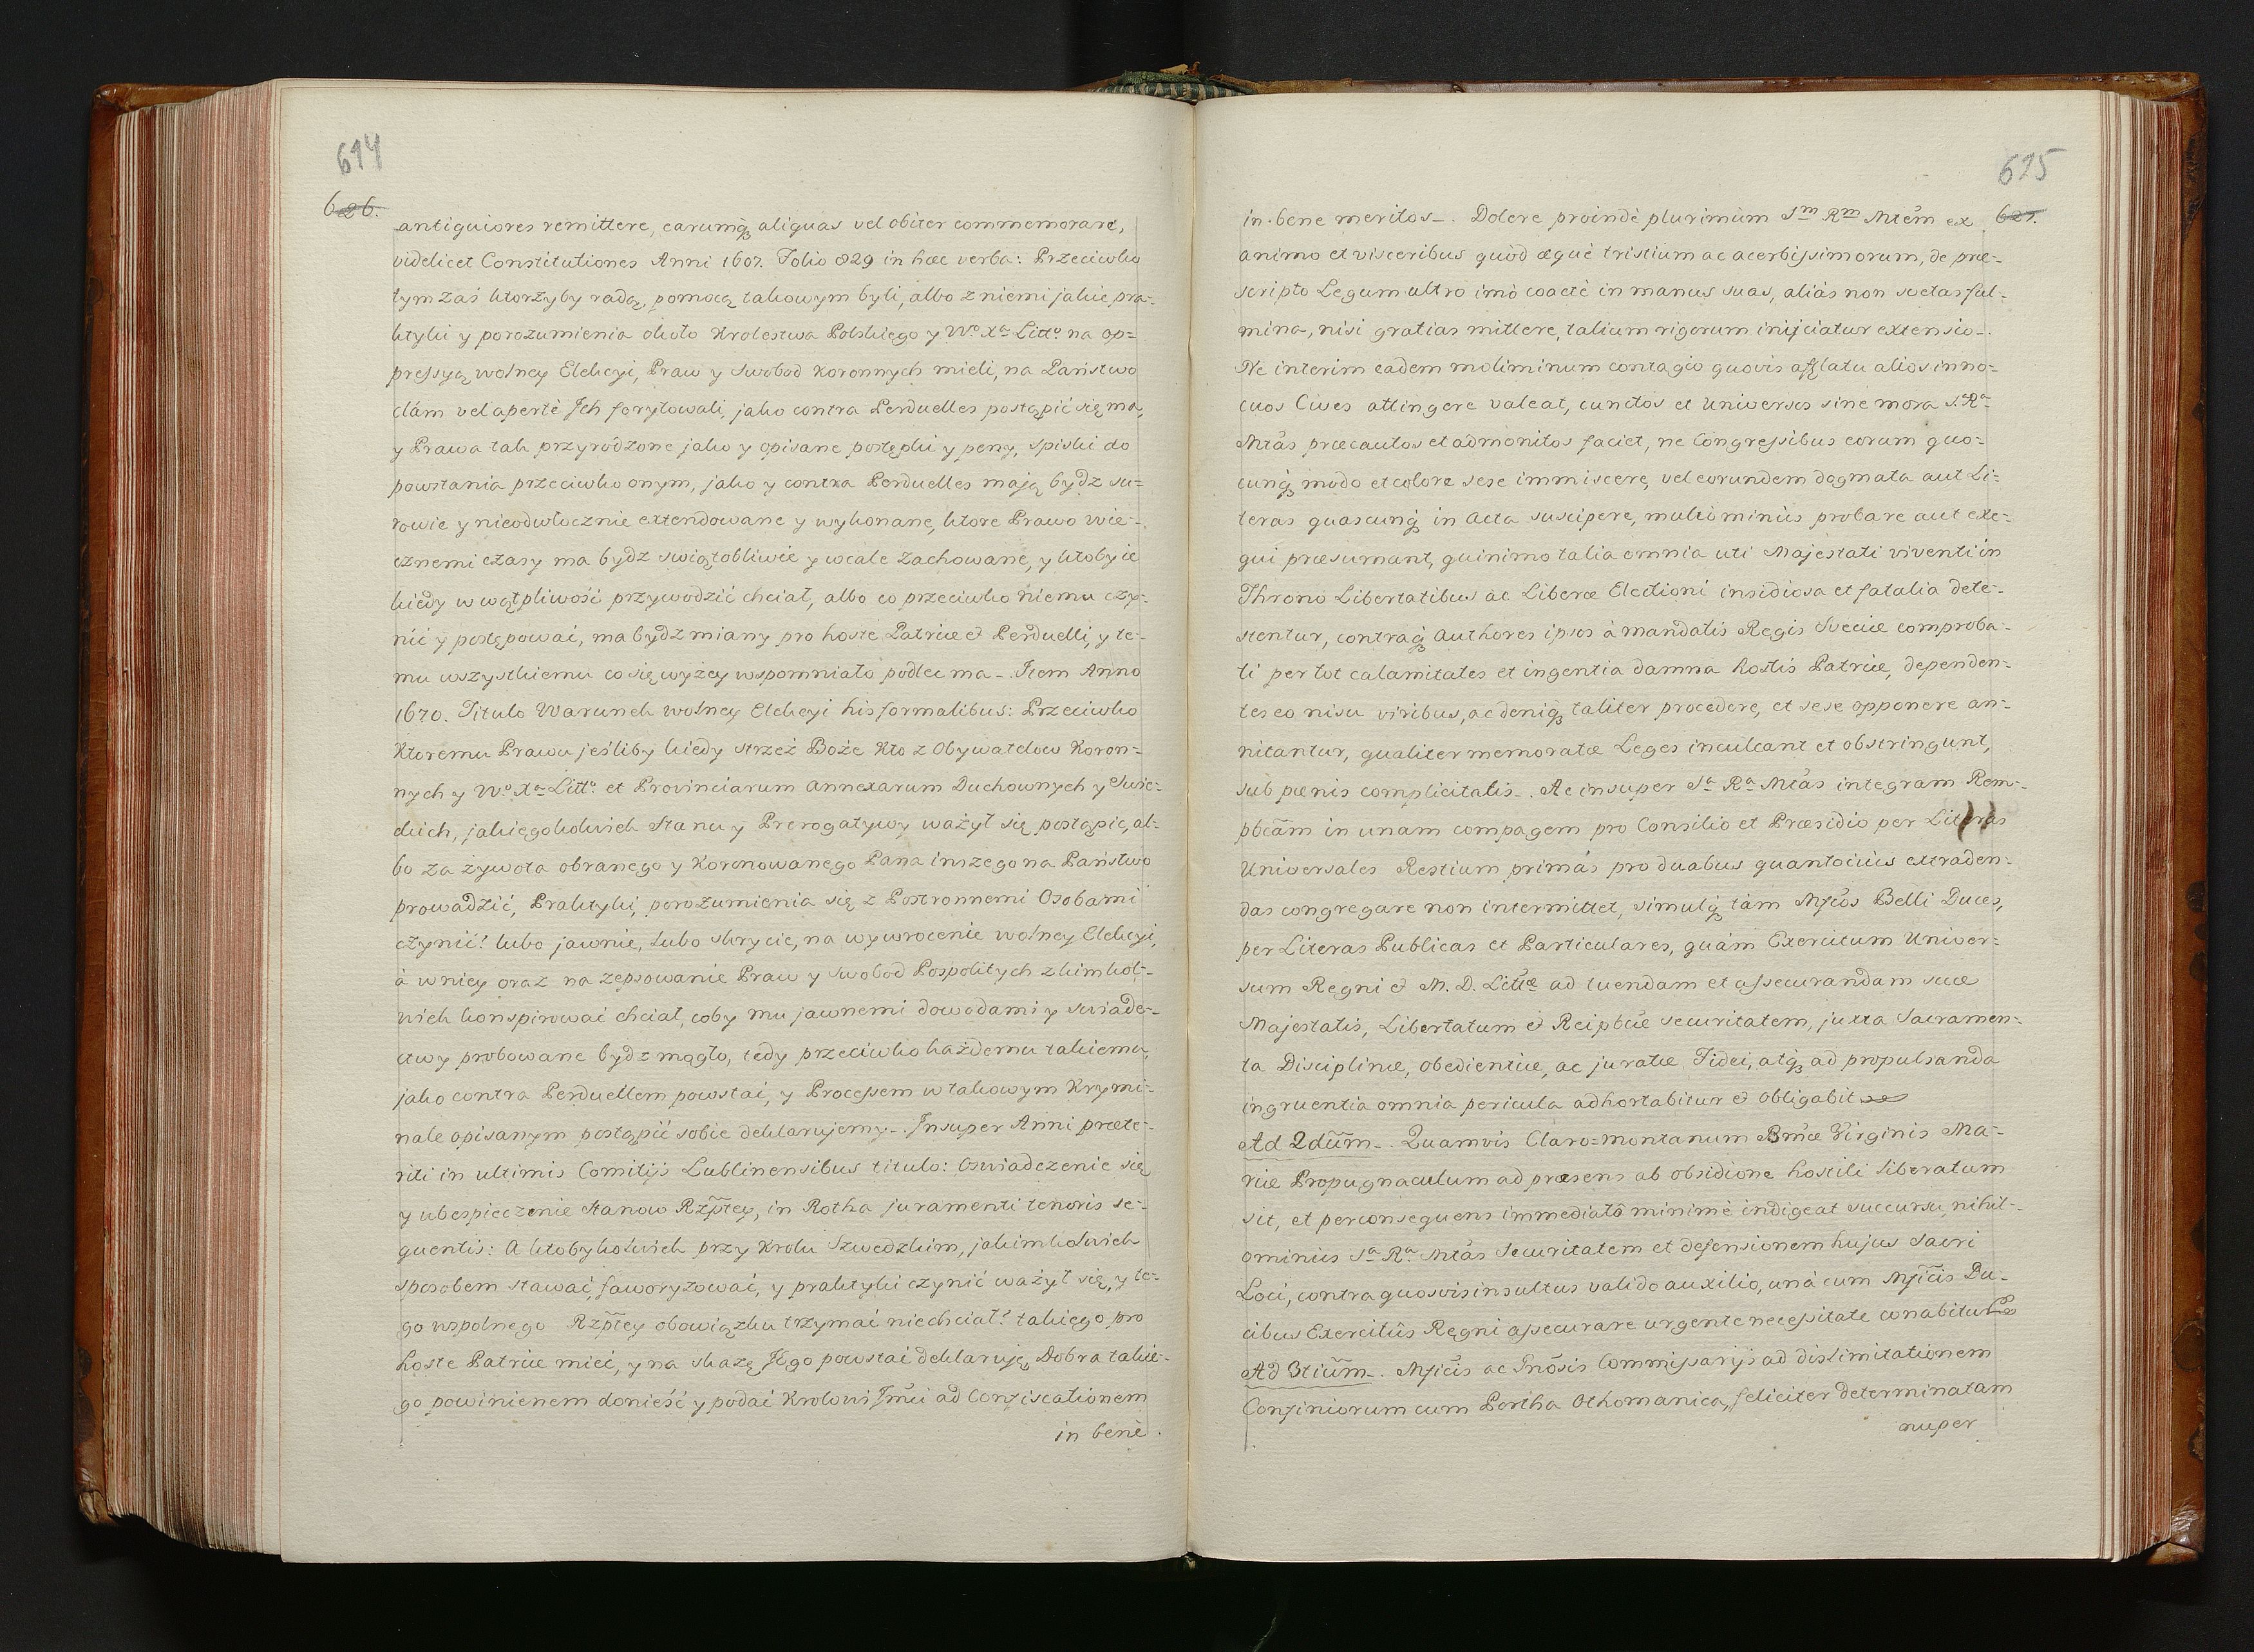 614
626.
antiquiores remittere, earumq́ aliquas vel obiter commemorare,
videlicet Constitutiones Anni 1607. Folio 829 in hæc verba: Przeciwko
tym zaś ktorzyby radą, pomocą takowym byli, albo z niemi jakie pra-
ktyki y porozumienia około Krolestwa Polskiego y Wo. Xa Litto. na op-
pressyą wolney Elekcyi, Praw y Swobod Koronnych mieli, na Państwo
clám vel apertè Jch forytowali, jako contra Perduelles postąpić się ma,
y Prawa tak przyrodzone jako y opisane postępki y peny, Spiski do
powstania przeciwko onym, jako y contra Perduelles mają bydz su-
rowie y nieodwłocznie extendowane y wykonane, ktore Prawo wie-
cznemi czasy ma bydz swiątobliwie y wcale zachowane, y ktoby ie
kiedy w wątpliwość przywodzić chciał, albo co przeciwko niemu czy-
nić y postępować, ma bydz miany pro hoste Patriæ & Perduelli, y te-
mu wszystkiemu co się wyżey wspomniało podlec ma-. Item Anno
1670. Titulo Warunek wolney Elekcyi his formalibus: Przeciwko
Ktoremu Prawu jeśliby kiedy strzeż Boże Kto z Obywatelow Koron-
nych y Wo. Xa Litto. et Provinciarum annexarum Duchownych y Swie-
ckich, jakiegokolwiek Stanu y Prerogatywy ważył się postąpić, al-
bo za żywota obranego y Koronowanego Pana inszego na Państwo
prowadzić, Praktyki, porozumienia się z Postronnemi Osobami
czynić! lubo jawnie, lubo skrycie, na wywrocenie wolney Elekcyi,
à w niey oraz na zepsowanie Praw y Swobod Pospolitych z kimkol-
wiek konspirować chciał, coby mu jawnemi dowodami y swiade-
ctwy probowane bydz mogło, tedy przeciwko każdemu takiemu,
jako contra Perduellem powstać, y Processem w takowym Krymi-
nale opisanym postąpić sobie deklarujemy-. Insuper Anni præte-
riti in ultimis Comitijs Lublinensibus titulo: Oswiadczenie się
y ubespieczenie Stanow Rzp̃tey, in Rotha juramenti tenoris se-
quentis: A ktobykolwiek przy Krolu Szwedzkim, jakimkolwiek
sposobem stawać, faworyzować, y praktyki czynić ważył się, y te-
go wspolnego Rzp̃tey obowiązku trzymać niechciał! takiego pro
hoste Patriæ mieć, y na skazę Jego powstać deklaruję, Dobra takie-
go powinienem donieść y podać Krolowi Jm̃ci ad Confiscationem
in benè
615
627.
in bene meritos-. Dolere proindè plurimùm Sm Rm Mtẽm ex
animo et visceribus quòd æquè tristium ac acerbissimorum, de præ-
scripto Legum ultrò imò coactè in manus suas, aliàs non suetas ful-
mina, nisi gratias mittere, talium rigorum inijciatur extensio-.
Ne interim eadem moliminum contagio quovis afflatu alios inno-
cuos Cives attingere valeat, cunctos et universos sine mora Sa. Ra
Mtãs præcautos et admonitos faciet, ne Congressibus eorum quo-
cunq́ modo et colore sese immiscere, vel eorundem dogmata aut Li-
teras quascunq́ in Acta suscipere, multò minùs probare aut exe-
qui præsumant, quinimo talia omnia uti Majestati viventi in
Throno Libertatibus ac Liberæ Electioni insidiosa et fatalia dete-
stentur, contraq́ Authores ipsos à mandatis Regis Sveciæ comproba-
ti per tot calamitates et ingentia damna hostis Patriæ, dependen-
tes eo nisu viribus, ac deniq́ taliter procedere, et sese opponere an-
nitantur, qualiter memoratæ Leges inculcant et obstringunt,
sub pœnis complicitatis-. Ac insuper Sa Ra Mtãs integram Rem-
pbcãm in unam compagem pro Consilio et Præsidio per Literas
Universales Restium primas pro duabus quantociùs extraden-
das congregare non intermittet, simulq́ tàm Mfcõs Belli Duces,
per Literas Publicas et Particulares, quàm Exercitum Univer-
sum Regni & M. D. Litt̃æ ad tuendam et assecurandam suæ
Majestatis, Libertatum & Reipbcæ securitatem, juxta Sacramen-
ta Disciplinæ, obedientiæ, ac juratæ Fidei, atq́ ad propulsanda
ingruentia omnia pericula adhortabitur & obligabit
Ad 2dũm-. Quamvis Claro-montanum Bm̃æ Virginis Ma-
riæ Propugnaculum ad præsens ab obsidione hostili liberatum
sit, et per consequens immediatô minimè indigeat succursu, nihil-
ominùs Sa. Ra. Mtãs Securitatem et defensionem hujus Sacri
Loci, contra quosvis insultus valido auxilio, unà cum Mfic̃is Du-
cibus Exercitûs Regni assecurare urgente necessitate conabitur
Ad 3tiũm-. Mfic̃is ac Gnõsis Commissarijs ad dislimitationem
Confiniorum cum Portha Othomanica, feliciter determinatam
nuper